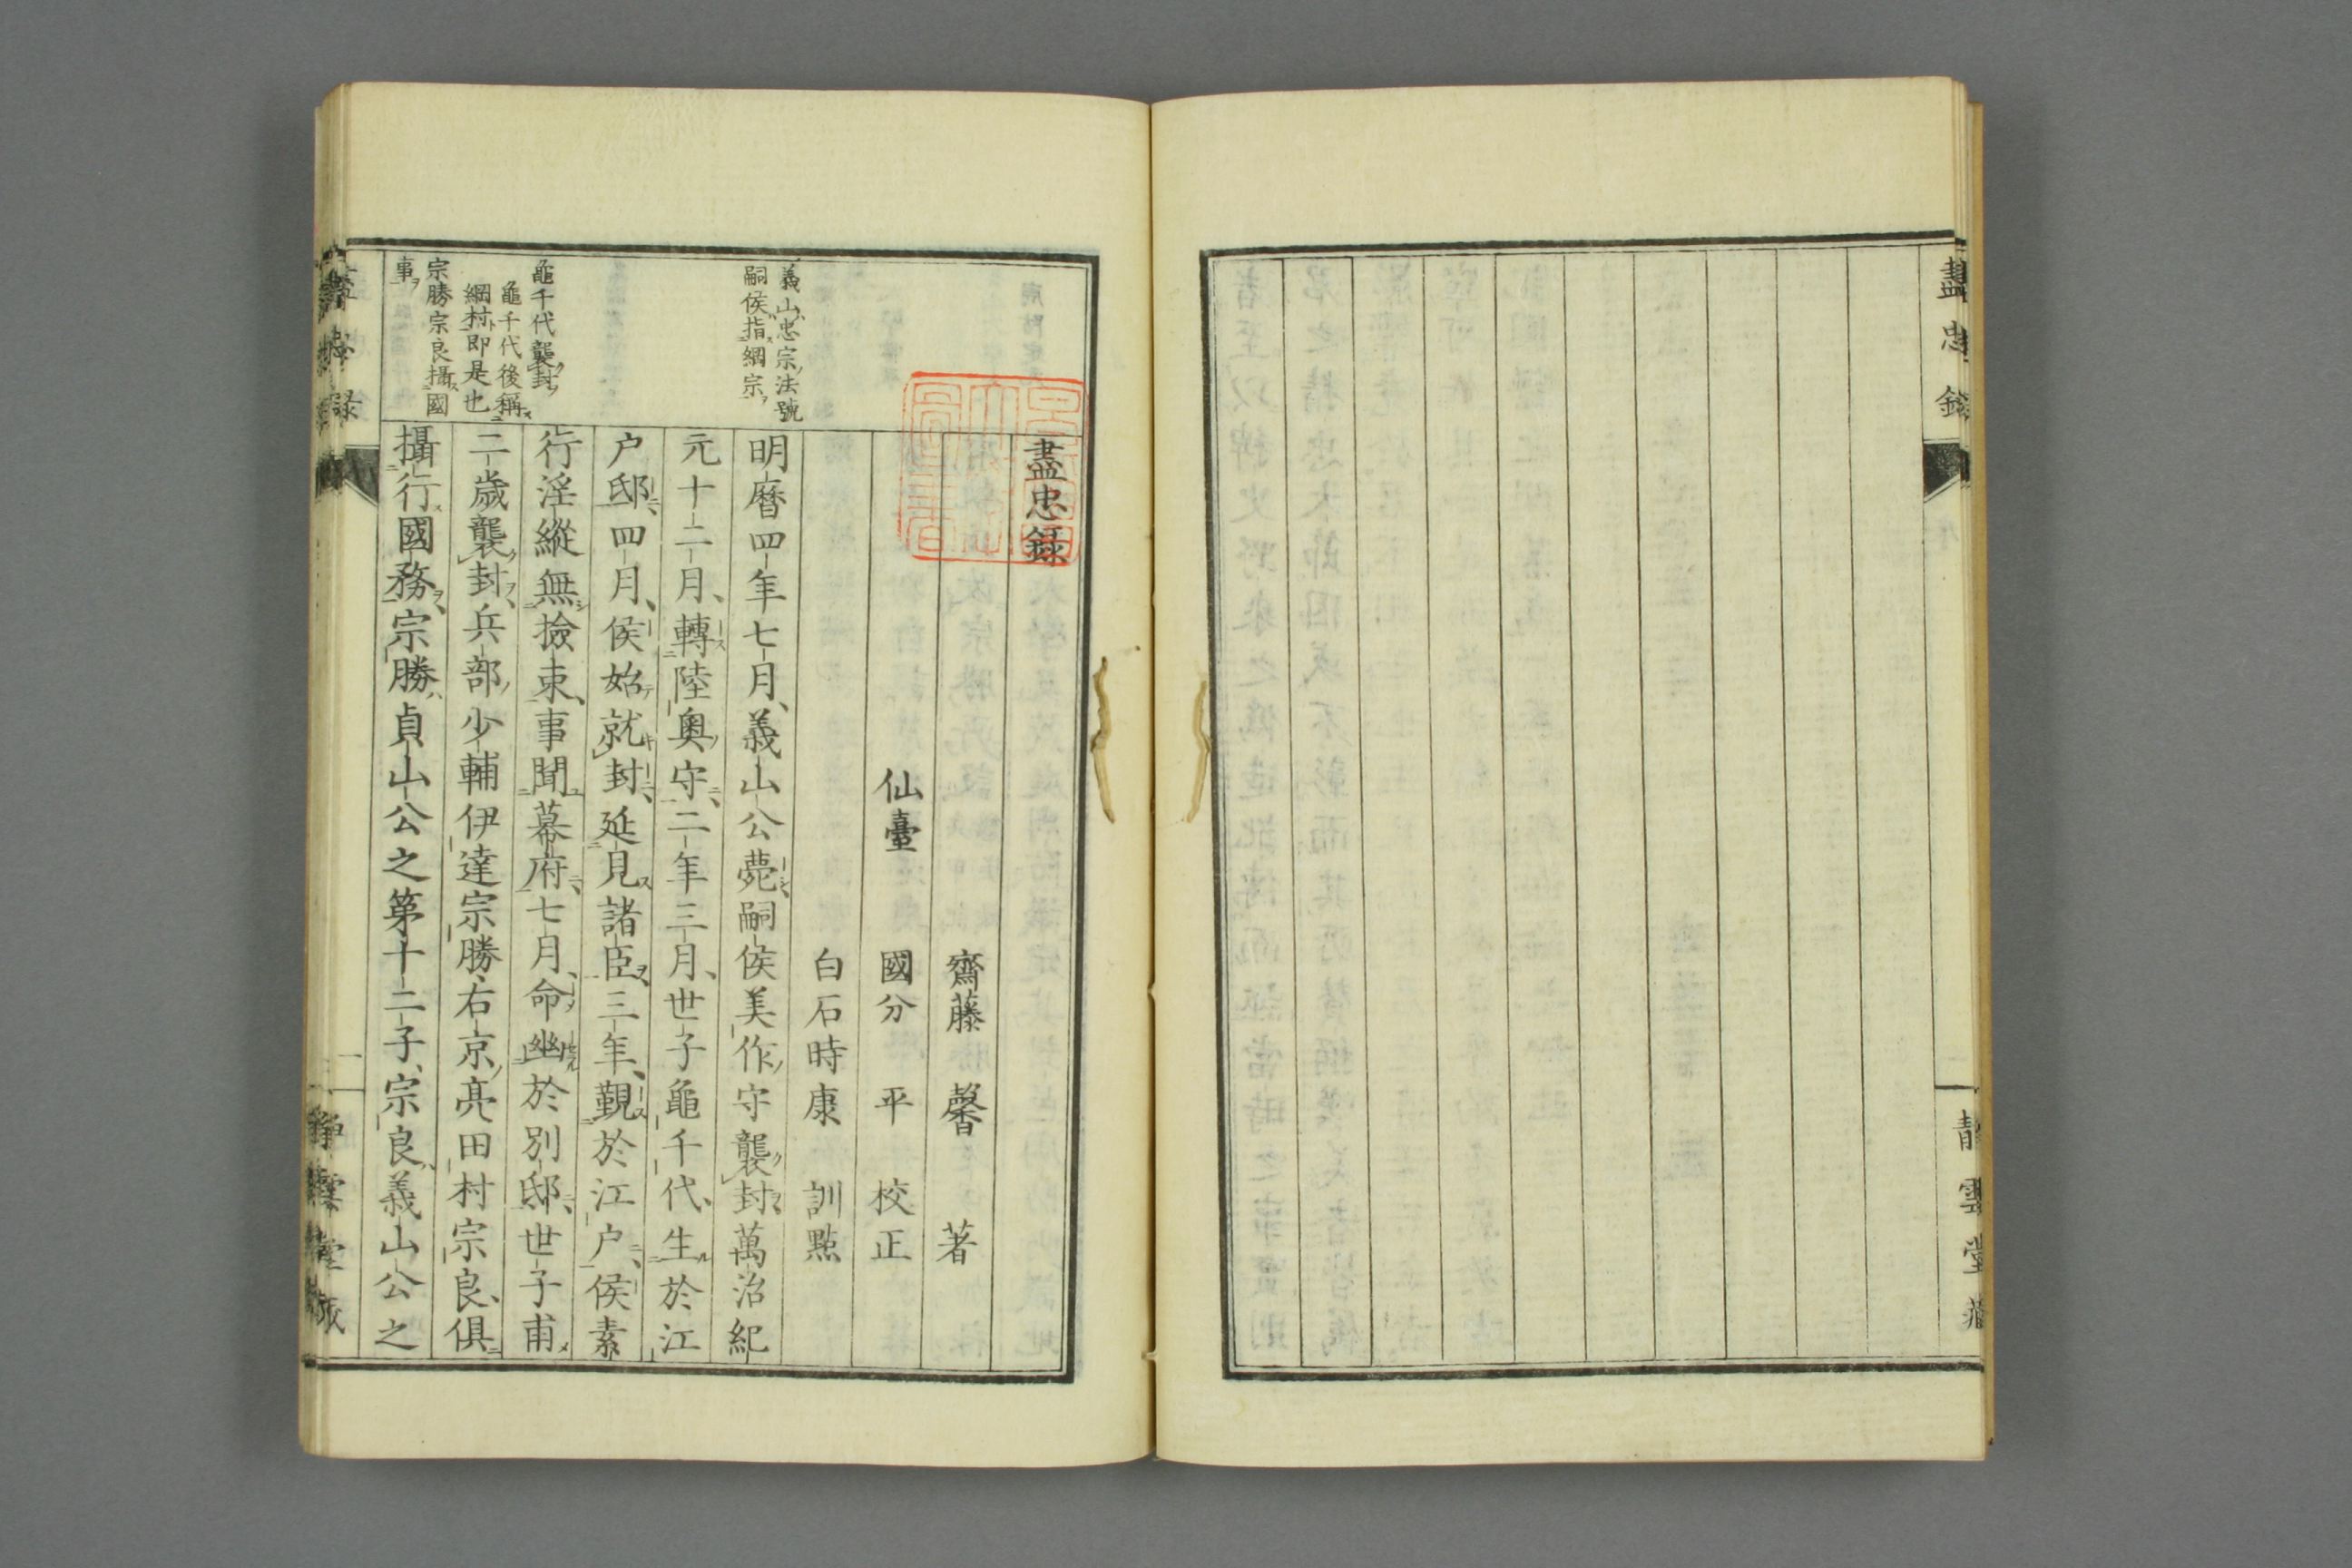 盡忠錄
靜雲堂藏
盡忠録
齋藤馨著
仙臺 國分平校正
白石時康訓點
義山忠宗法號
嗣侯指綱宗
明曆四年七月、義山公薨、嗣侯美作守襲封、萬治紀
元十二月、轉陸奧守、二年三月、世子龜千代、生於江
户邸、四月、侯始就封、延見諸臣、三年、覲於江户、侯素
龜千代襲封
龜千代後稱
綱村即是也
行淫縱無撿束、事聞幕府、七月、命幽於別邸、世子甫
二歲襲封、兵部少輔伊達宗勝、右京亮田村宗良、俱
宗勝宗良攝國
事
攝行國務、宗勝貞山公之第十二子、宗良義山公之
一